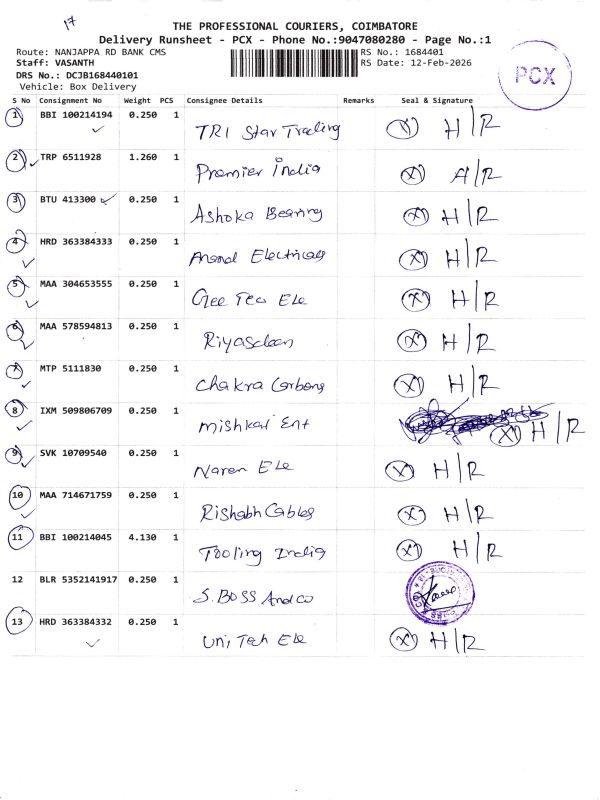 17
THE PROFESSIONAL COURIERS, COIMBATORE
Delivery Runsheet - PCX - Phone No.:9047080280 - Page No.:1
Route: NANJAPPA RD BANK CMS
RS No.: 1684401
Staff: VASANTH
RS Date: 12-Feb-2026
DRS No.: DCJB168440101
Vehicle: Box Delivery
PCX
S No Consignment No Weight PCS Consignee Details Remarks Seal & Signature
1 BBI 100214194 0.250 1 TRI Star Trading (X) H/R
2 TRP 6511928 1.260 1 Premier India (X) A/R
3 BTU 413300 0.250 1 Ashoka Bearing (X) H/R
4 HRD 363384333 0.250 1 Anand Electricals (X) H/R
5 MAA 304653555 0.250 1 Gee Tec Ele (X) H/R
6 MAA 578594813 0.250 1 Riyasdeen (X) H/R
7 MTP 5111830 0.250 1 Chakra Carbons (X) H/R
8 IXM 509806709 0.250 1 Mishkal Ent (X) H/R
9 SVK 10709540 0.250 1 Naren Ele (X) H/R
10 MAA 714671759 0.250 1 Rishabh Cables (X) H/R
11 BBI 100214045 4.130 1 Tooling India (X) H/R
12 BLR 5352141917 0.250 1 S.BOSS And co
13 HRD 363384332 0.250 1 Uni Teh Ele (X) H/R